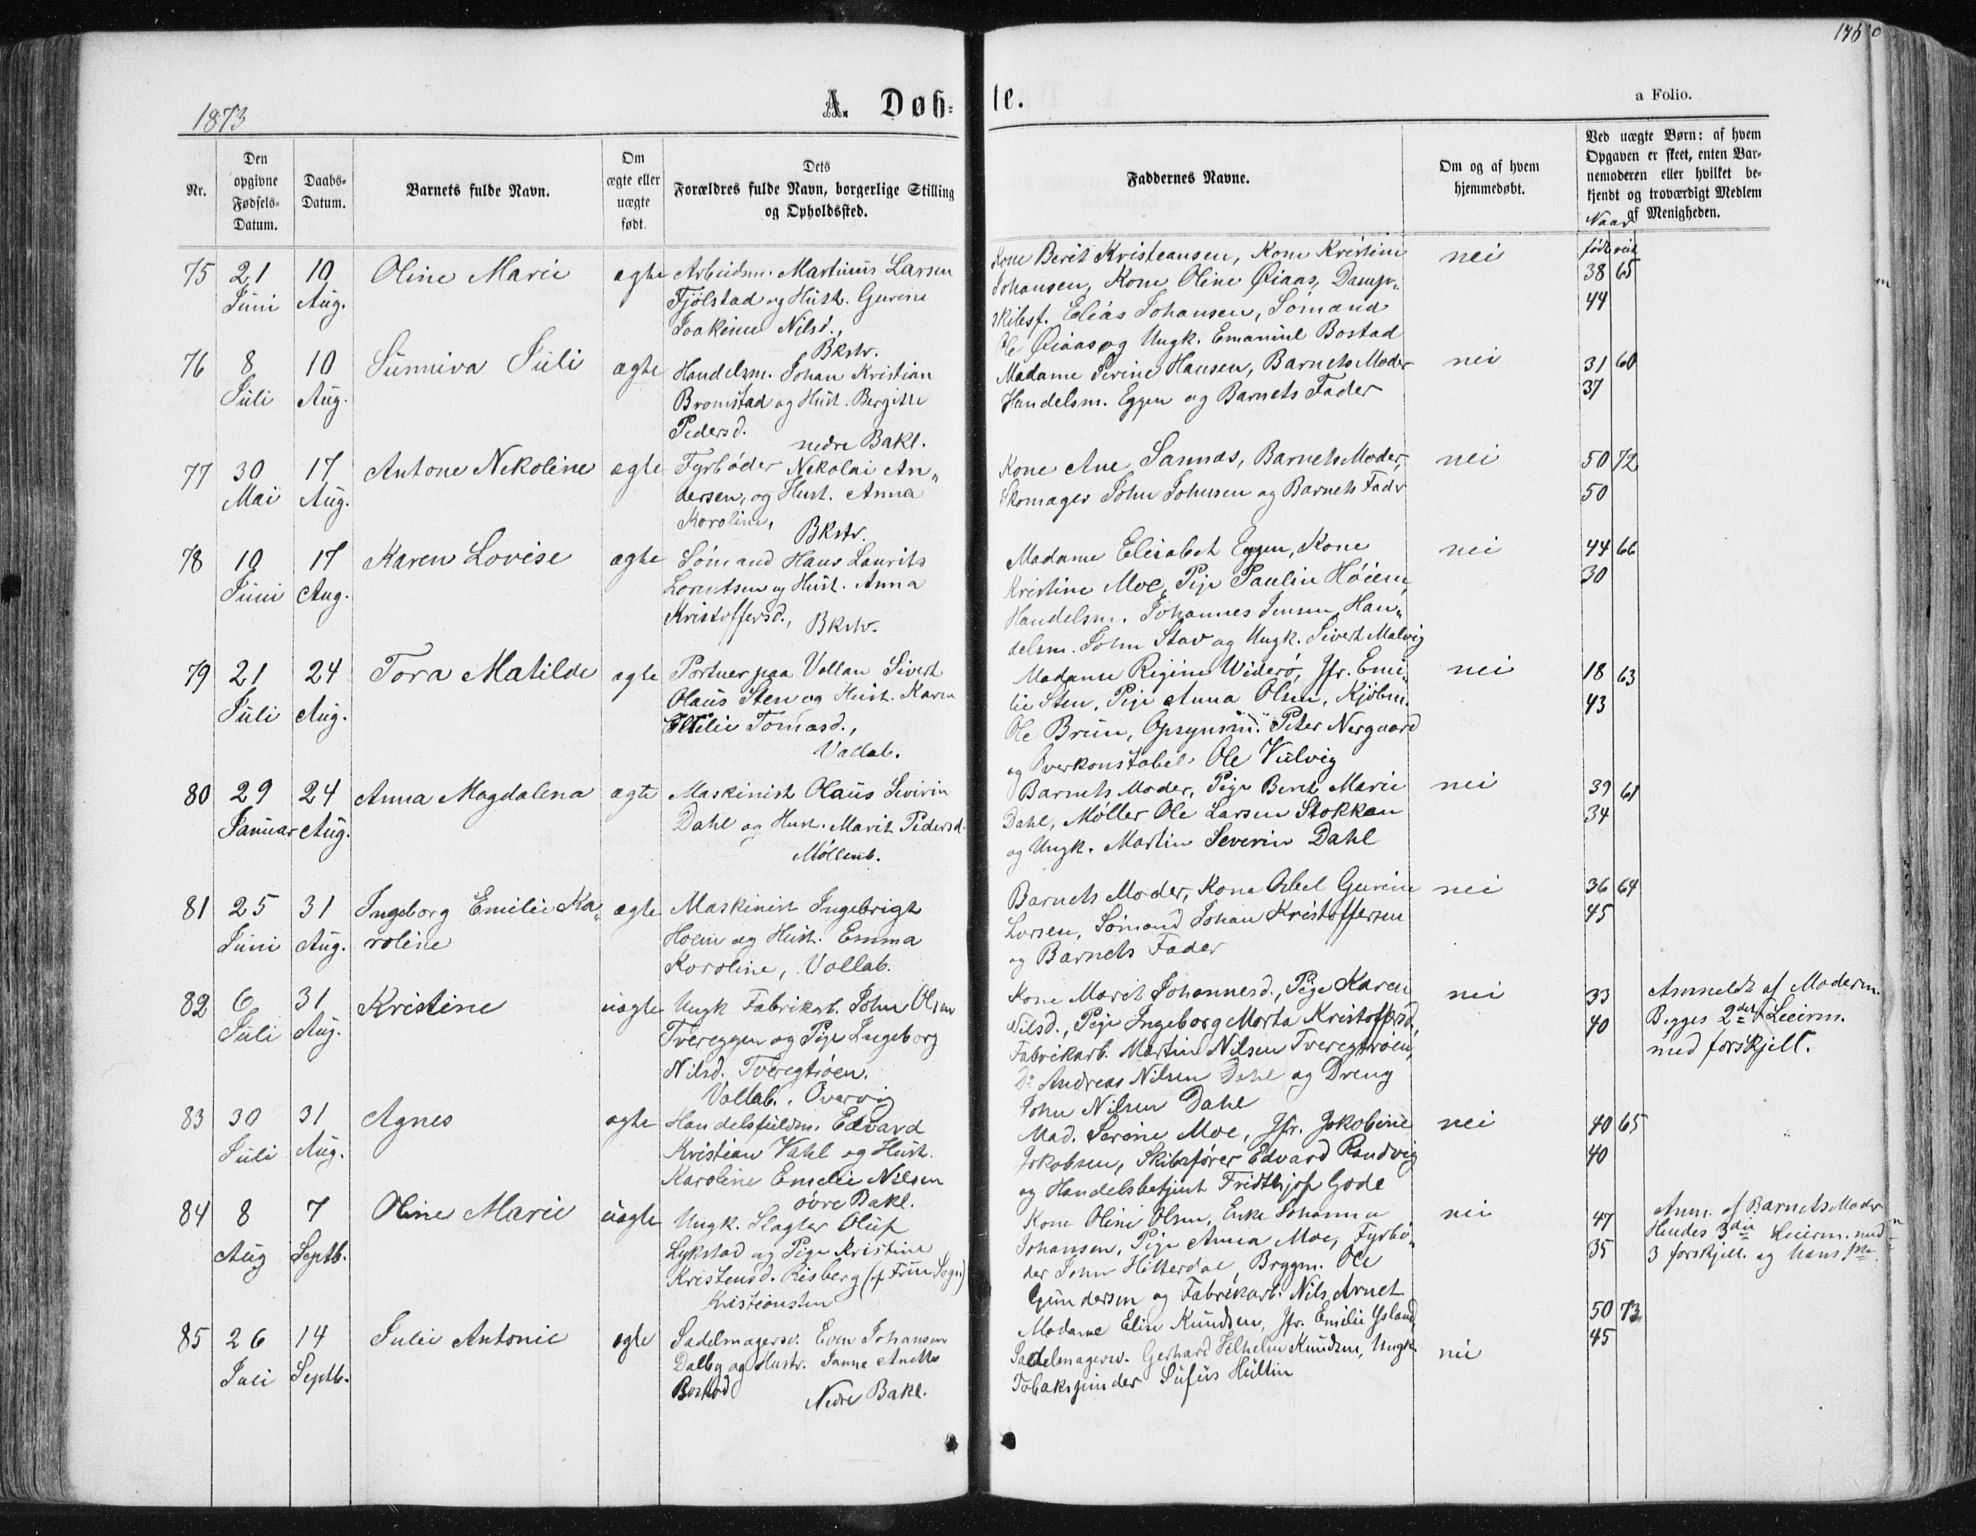 146
1873
A. Døb-
te.
a Folio.
Nr.
Den
opgivne
Fødsels-
Datum.
Daabs-
Datum.
Barnets fulde Navn.
Om
ægte eller
uægte
født.
Dets
Forældres fulde Navn, borgerlige Stilling
og Opholdssted.
Faddernes Navne.
Om og af hvem
hjemmedøbt.
Ved uægte Børn: af hvem
Opgaven er skeet, enten Bar-
nemoderen eller hvilket be-
kjendt og troværdigt Medlem
af Menigheden.
Naar
født viet
75 21 10 Oline Marie ægte Arbeidsm. Martinus Larsen
Juni Aug. Fjølstad og Hust. Gurine
Joakime Nilsd.,
Bkstr.
Kone Berit Kristeansen, Kone Kristine nei 38 65
Johansen, Kone Oline Øiaas, Damp- 44
skibsf. Elias Johansen, Sømand
Ole Øiaas og Ungk. Emanuel Bostad
76 8 10 Sunniva Juli ægte Handelsm. Johan Kristian
Juli Aug. Bromstad og Hust. Bergitte
Pedersd.
nedre Bakl.
Madame Serine Hansen, Barnets Moder nei 31 60
Handelsm. Eggen og Barnets Fader 37
77 30 17 Antone Nekoline ægte Fyrbøder Nekolai An-
Mai Aug. dersen, og Hust. Anna
Karoline,
Bkstr.
Kone Ane Sannæs, Barnets Moder, nei 50 72
Skomager John Johnsen og Barnets Fader 50
78 10 17 Karen Lovise ægte Sømand Hans Laurits
Juni Aug. Lorentsen og Hust. Anna
Kristoffersd., Bkstr.
Madame Elisabet Eggen, Kone nei 44 66
Kristine Moe, Pige Paulin Høiem, 30
Handelsm. Johannes Jensen, Han-
delsm. John Stav og Ungk. Sivert Malvig
79 21 24 Tora Matilde ægte Portner paa Vollan Sivert
Juli Aug. Olaus Sten og Hust. Karen
Tomasd.,
Vollab.
Madame Regine Widerø, Jfr. Emi- nei 18 63
lie Sten, Pige Anna Olsen, Kjøbm. 43
Ole Brun, Opsynsm. Peter Nergaard
og Overkonstabel Ole Vulvig
80 29 24 Anna Magdalena ægte Maskinist Olaus Severin
Januar Aug. Dahl og Hust. Marit Pedersd.
Møllenb.
Barnets Moder, Pige Beret Marie nei 39 61
Dahl, Møller Ole Larsen Stokkan 34
og Ungk. Martin Severin Dahl
81 25 31 Ingeborg Emilie Ka- ægte Maskinist Ingebrigt
Juni Aug. roline Hoem og Hust. Emma
Karoline, Vollab.
Barnets Moder, Kone Gurine nei 36 64
Larsen, Sømand Johan Kristoffersen 45
og Barnets Fader
82 6 31 Kristine uægte Ungk Fabrikarb. John Olsen
Juli Aug. Tvereggen og Pige Ingeborg
Nilsd. Tveregtrøen.
Vollab. Overvig
Kone Marit Johannesd., Pige Karen nei 33 Anmeldt af Moderen.
Nilsd., Pige Ingeborg Marta Kristoffersd, 40 Begges 2det Leierm.
Fabrikarb. Martin Nilsen Tveregtrøen, med forskjell.
Do Andreas Nilsen Dahl og Dreng
John Nilsen Dahl
83 30 31 Agnes ægte Handelsfuldm. Edvard
Juli Aug. Kristian Vahl og Hust.
Karoline Emelie Nilsen
øvre Bakl.
Mad. Serine Moe, Jfr. Jokobine nei 40 65
Jokobsen, Skibsfører Edvard Randvig 40
og Handelsbetjent Fridthjof Gode
84 8 7 Oline Marie uægte Ungk. Slagter Oluf
Aug Septb. Lykstad og Pige Kristine
Kristensd. Risberg (af Frue Sogn)
Kristiansten
Kone Oline Olsen, Enke Johanna nei 47 Anm. af Barnets Moder
Johansen, Pige Anna Moe, Fyrbø- 35 Hendes 3die Leierm. med
der John Hitterdal, Bryggm. Ole 3 forskjell. og hans
Gundersen og Fabrikarb. Nils Arnet
85 26 14 Julie Antonie ægte Sadelmagersv. Even Johansen
Juli Septb. Dalby og Hustr. Janna Anette
Bostad
Nedre Bakl.
Madame Elin Knudsen, Jfr. Emelie Ysland, 50 73
Sadelmagersv. Gerhard Vilhelm Knudsen, Ungk nei 45
Tobakspinder Sufus Hultin